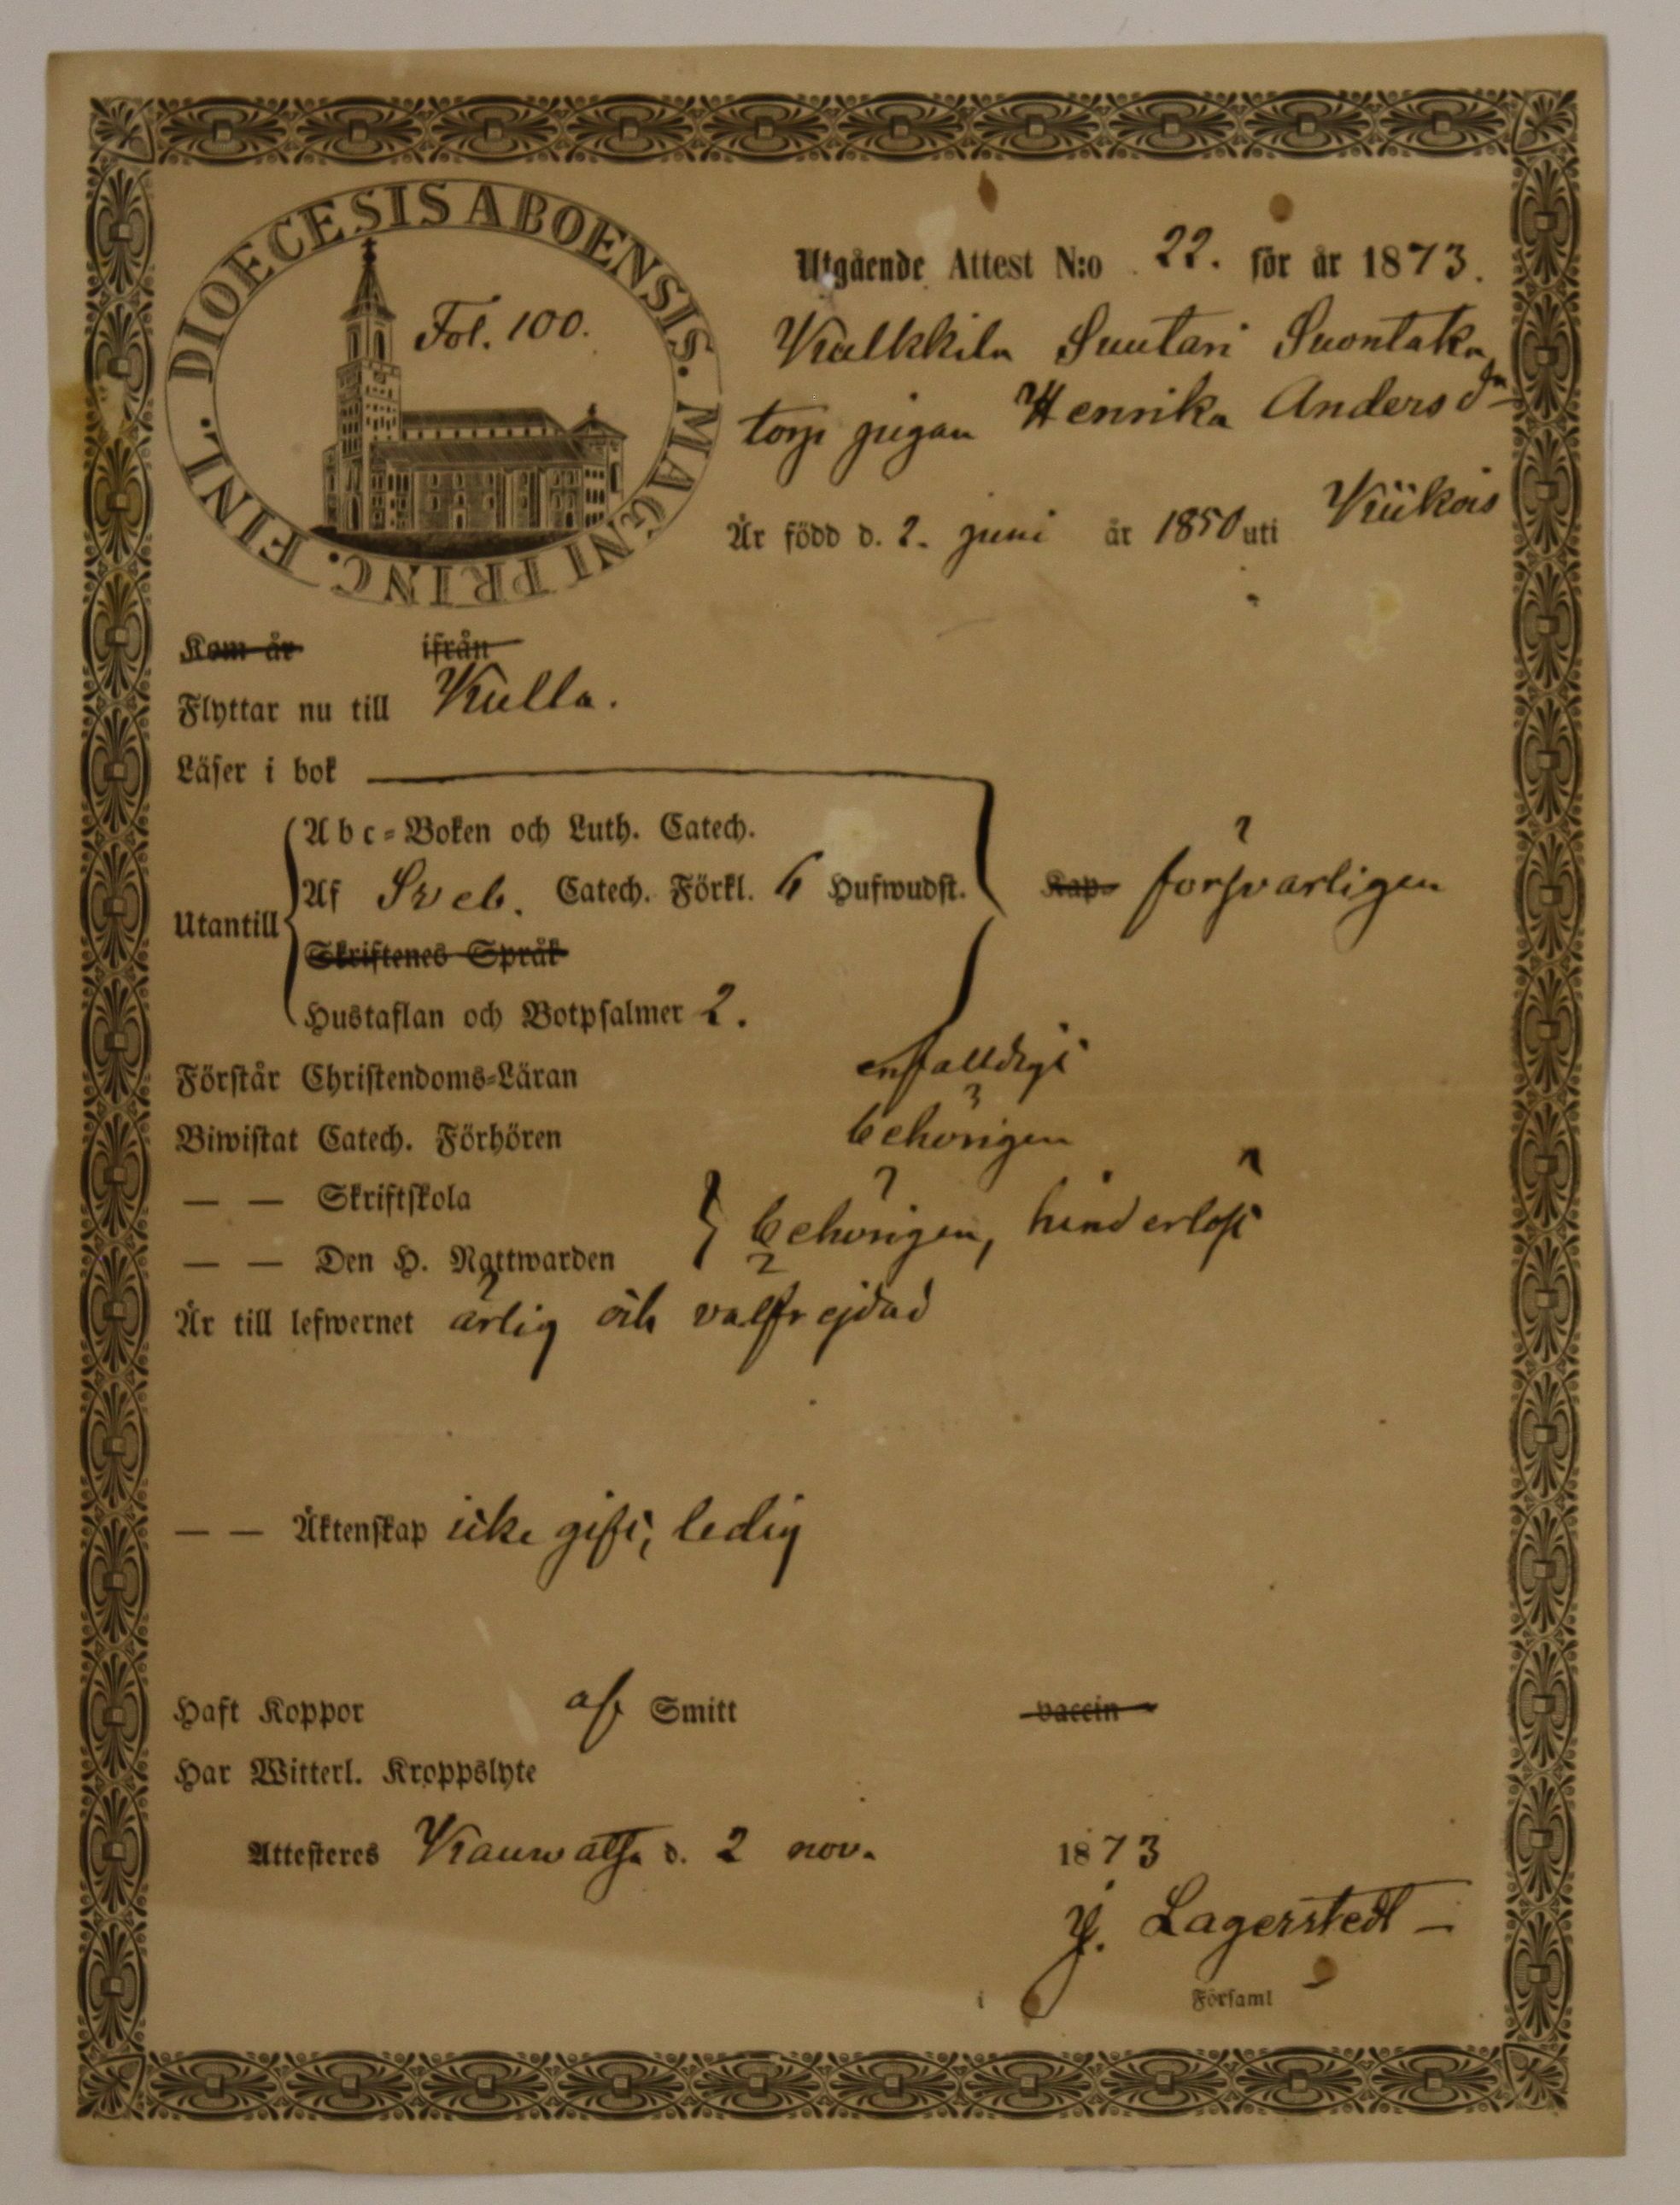 DIOECESIS ABOENSIS. MAGNI PRINC. FINL.
Fol. 100.
Utgående Attest N:o 22. för år 1873.
Kulkkila Suutari Suontaka
torp pigan Henrika Andersdr
Är född d. 2. juni år 1850 uti Kiikois
Kom år ifrån
Flyttar nu till Kulla.
Läser i bok
Utantill
Abc-Boken och Luth. Catech.
Af Sveb. Catech. Förkl. 6 Hufwudst. Kap. försvarligen
Skriftenes Språk
Hustaflan och Botpsalmer 2.
Förstår Christendoms-Läran enfalldigt
Biwistat Catech. Förhören behörigen
— — Skriftskola
behörigen, hinderlöst
— — Den H. Nattwarden
Är till lefwernet ärlig och välfrejdad
— — Äktenskap icke gift, ledig
Haft Koppor af Smitt vaccin
Har Witterl. Kroppslyte
Attesteres Kauwatsa d. 2 nov. 1873
J. Lagerstedt
i Församl